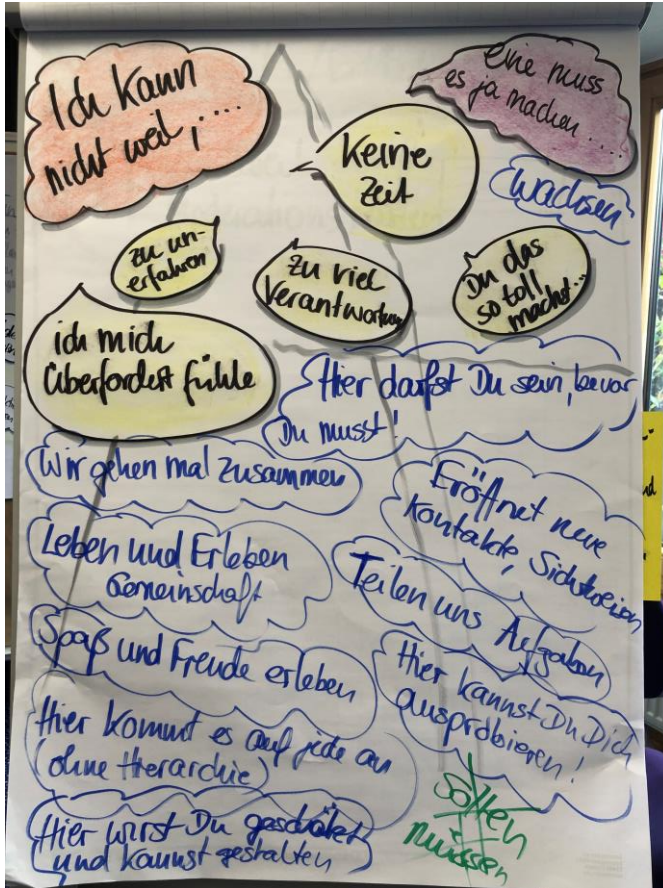 Ich kann
nicht weil, ....
eine muss
es ja machen .....
Keine
Zeit
Wachsen
zu un-
erfahren
zu viel
Verantwortung
Du das
so toll
machst...
ich mich
überfordert fühle
Hier darfst Du sein, bevor
Du musst!
Wir gehen mal zusammen
Eröffnet neue
Kontakte, Sichtweisen
Leben und Erleben
Gemeinschaft
Teilen uns Aufgaben
Spaß und Freude erleben
Hier kannst Du Dich
ausprobieren!
Hier kommt es auf jede an
(ohne Hierarchie)
sollen
müssen
Hier wirst Du geschätzt
und kannst gestalten